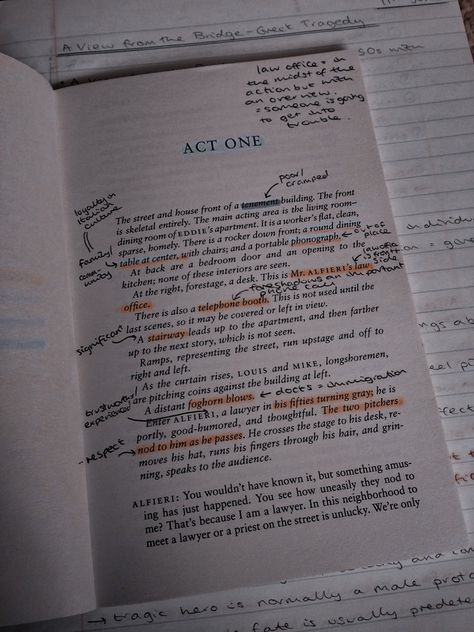 A View from the Bridge - Greek Tragedy
50s with
law office = in
the midst of the
action but with
an overview.
= someone is going
to get into
trouble.
ACT ONE
poor/
cramped
loyalty in
Italian
culture
The street and house front of a tenement building. The front
is skeletal entirely. The main acting area is the living room–
dining room of EDDIE's apartment. It is a worker's flat, clean,
sparse, homely. There is a rocker down front; a round dining
table at center, with chairs; and a portable phonograph.
out of
place
family/
community
At back are a bedroom door and an opening to the
kitchen; none of these interiors are seen.
At the right, forestage, a desk. This is Mr. ALFIERI's law
office.
foreshadows an important
phone call
There is also a telephone booth. This is not used until the
last scenes, so it may be covered or left in view.
significant
A stairway leads up to the apartment, and then farther
up to the next story, which is not seen.
Ramps, representing the street, run upstage and off to
right and left.
As the curtain rises, LOUIS and MIKE, longshoremen,
are pitching coins against the building at left.
A distant foghorn blows.
docks = immigration
trustworthy/
experienced
Enter ALFIERI, a lawyer in his fifties turning gray; he is
portly, good-humored, and thoughtful. The two pitchers
nod to him as he passes. He crosses the stage to his desk, re-
moves his hat, runs his fingers through his hair, and grin-
ning, speaks to the audience.
respect
ALFIERI: You wouldn't have known it, but something amus-
ing has just happened. You see how uneasily they nod to
me? That's because I am a lawyer. In this neighborhood to
meet a lawyer or a priest on the street is unlucky. We're only
→ tragic hero is normally a male prota
fate is usually predete